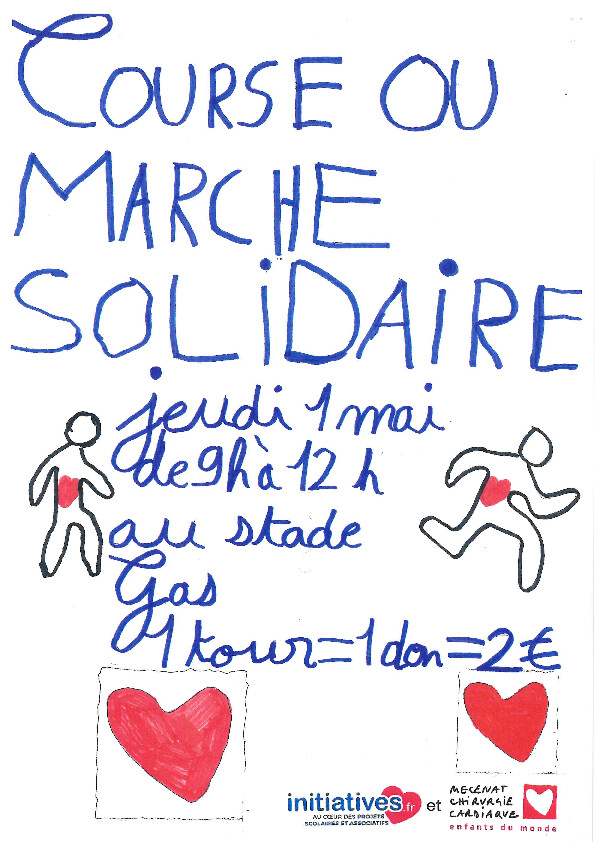 COURSE OU
MARCHE
SOLiDAiRE
jeudi 1 mai
de 9h à 12 h
au stade
Gas
1 tour=1 don=2 €
initiatives.fr et
AU CŒUR DES PROJETS
SCOLAIRES ET ASSOCIATIFS
MECENAT
CHiRURGiE
CARDiAQUE
enfants du monde